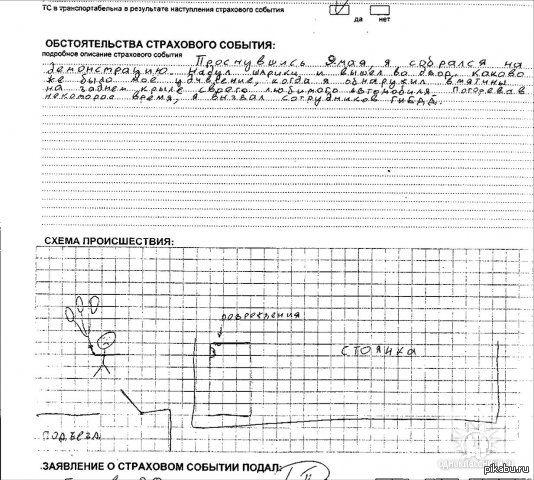 ТС в транспортабельна в результате наступления страхового события
да нет
ОБСТОЯТЕЛЬСТВА СТРАХОВОГО СОБЫТИЯ:
подробное описание страхового события
Проснувшись 9мая, я собрался на
демонстрацию. Надул шарики и вышел во двор. Каково
же было мое удивление, когда я обнаружил вмятины
на заднем крыле своего любимого автомобиля. Погоревав
некоторое время, я вызвал сотрудников ГИБДД.
СХЕМА ПРОИСШЕСТВИЯ:
повреждения
СТОЯНКА
ПОДЪЕЗД
.ЗАЯВЛЕНИЕ О СТРАХОВОМ СОБЫТИИ ПОДАЛ:
pikabu.ru